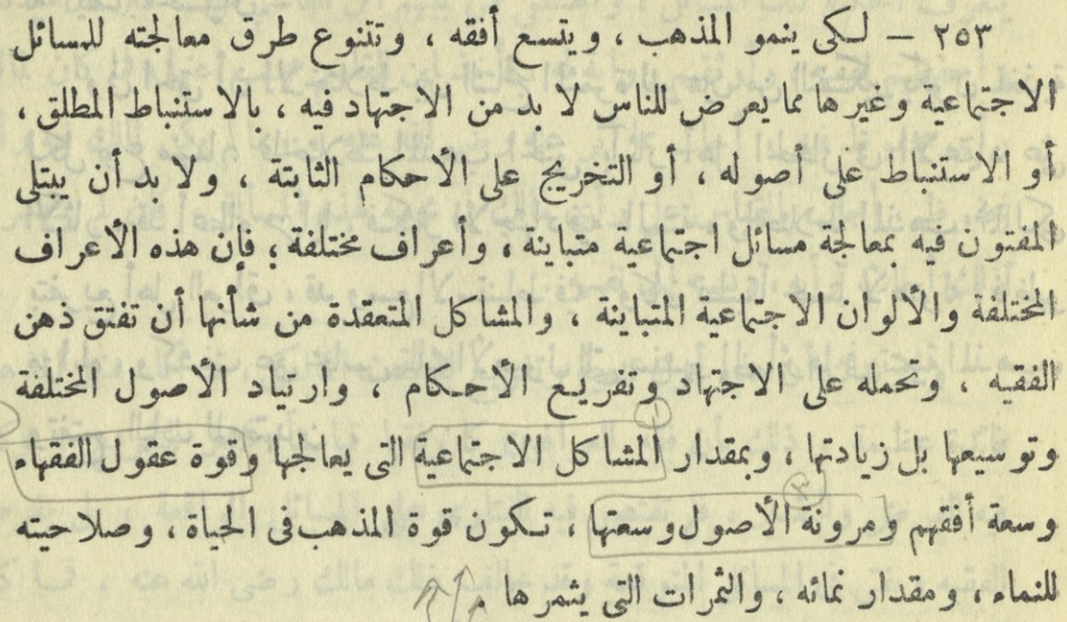 ٢٥٣ — لكى ينمو المذهب ، ويتسع أفقه ، وتتنوع طرق معالجته للمسائل
الاجتماعية وغيرها مما يعرض للناس لا بد من الاجتهاد فيه ، بالاستنباط المطلق ،
أو الاستنباط على أصوله ، أو التخريج على الأحكام الثابتة ، ولا بد أن يبتلى
المفتون فيه بمعالجة مسائل اجتماعية متباينة ، وأعراف مختلفة ؛ فإن هذه الأعراف
المختلفة والألوان الاجتماعية المتباينة ، والمشاكل المتعقدة من شأنها أن تفتق ذهن
الفقيه ، وتحمله على الاجتهاد وتفريع الأحكام ، وارتياد الأصول المختلفة
وتوسيعها بل زيادتها ، وبمقدار المشاكل الاجتماعية التى يعالجها وقوة عقول الفقهاء
وسعة أفقهم ومرونة الأصول وسعتها ، تكون قوة المذهب فى الحياة ، وصلاحيته
للنماء ، ومقدار نمائه ، والثمرات التى يثمرها .